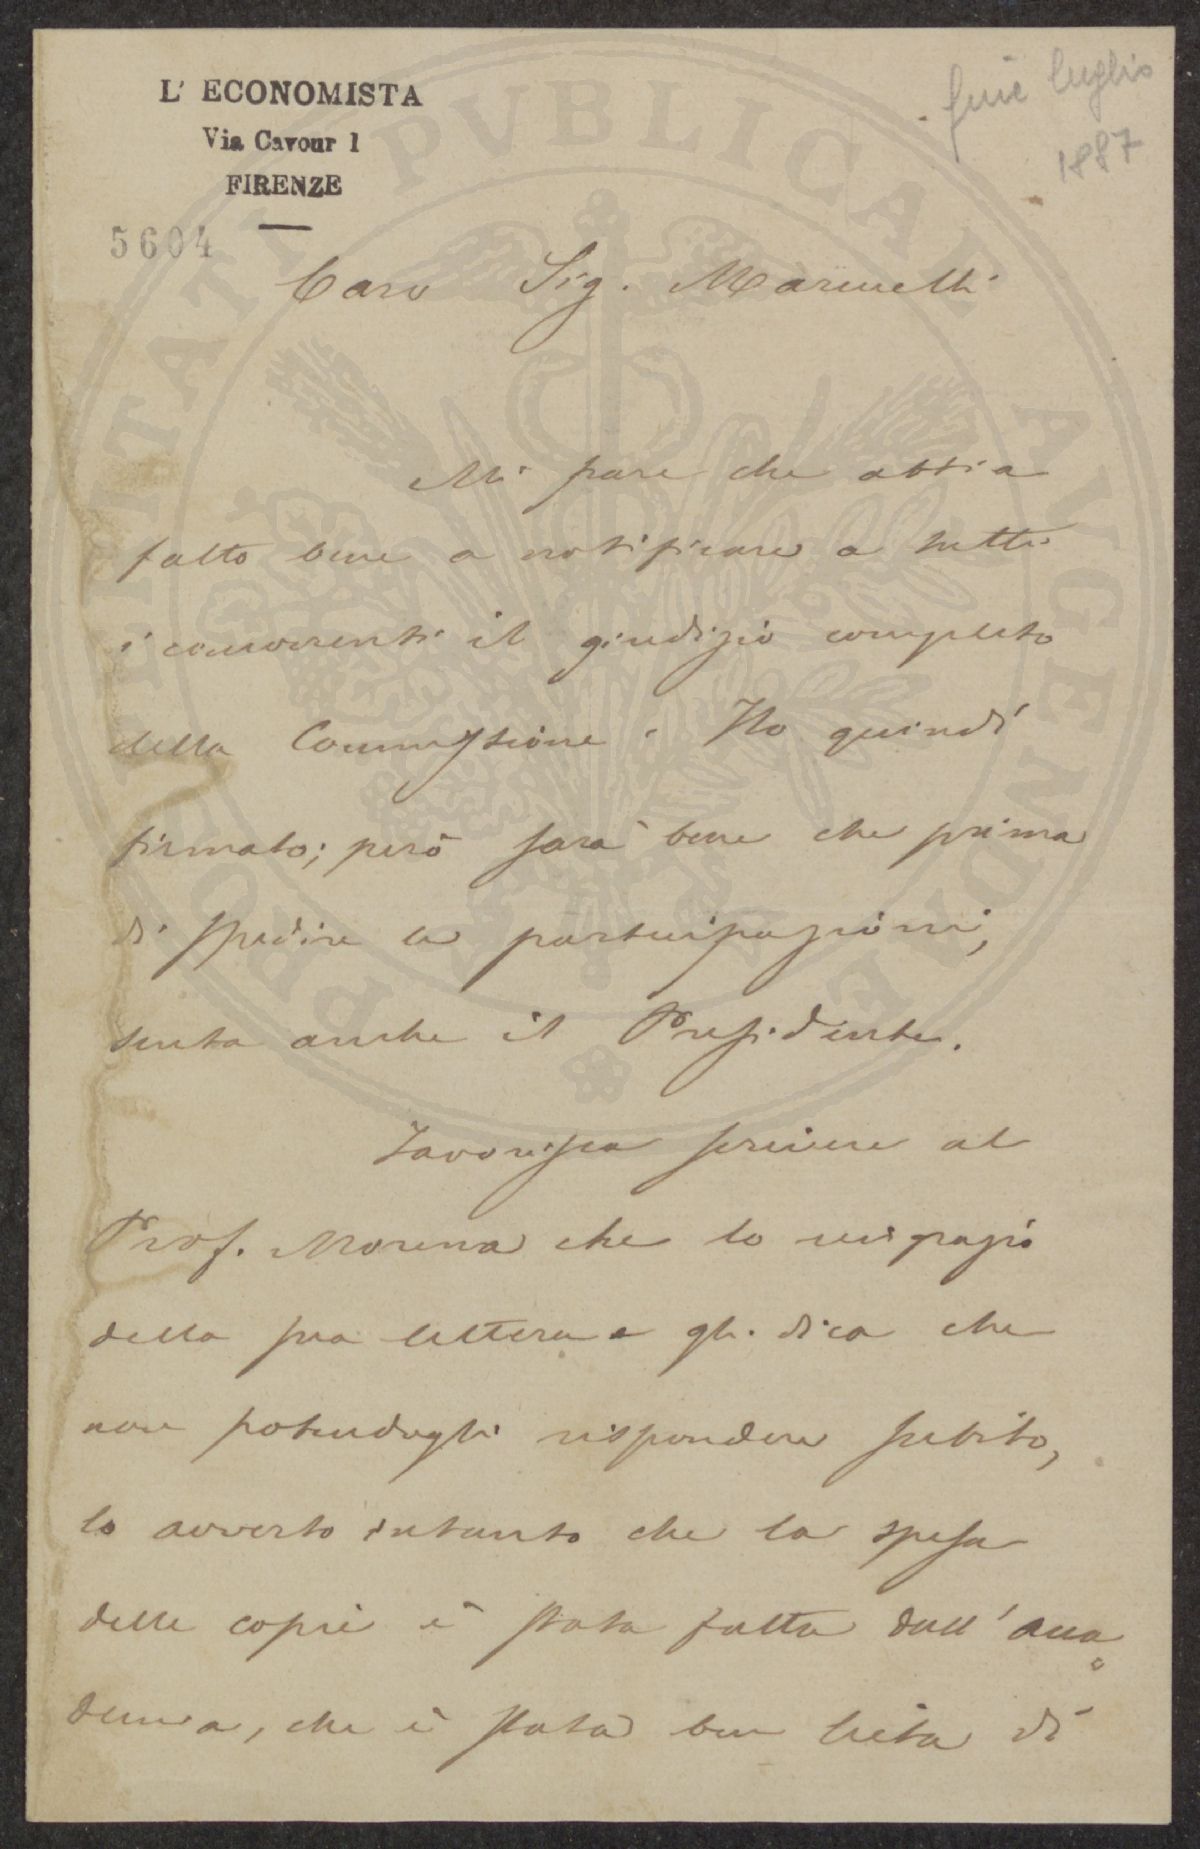 L' ECONOMISTA
Via Cavour 1
FIRENZE
fine luglio
1887
5604
Caro Sig. Marinelli
Mi pare che abbia
fatto bene a notificare a tutti
i concorrenti il giudizio completo
della Commissione. Ho quindi
firmato; però sarà bene che prima
di spedire le partecipazioni,
senta anche il Presidente.
Favorisca scrivere al
Prof. Morena che lo ringrazio
della sua lettera e gli dica che
non potendogli rispondere subito,
lo avverto intanto che la spesa
delle copie è stata fatta dall'acca
demia, che è stata ben lieta di
PROSPERITATI PVBLICAE AVGENDAE